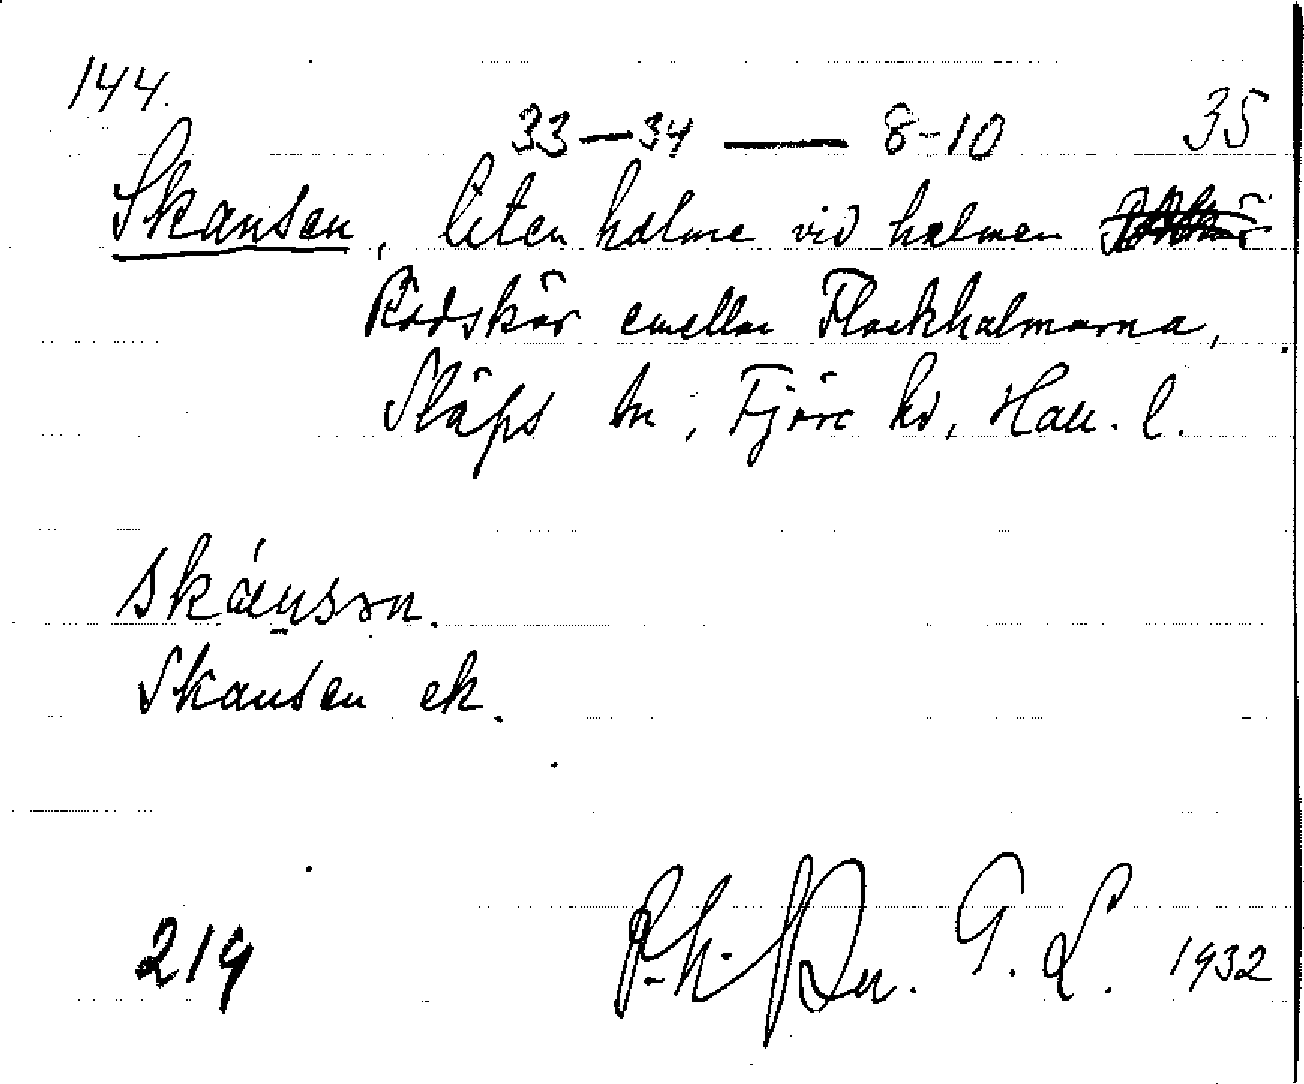 144.
33—34 — 8-10 35
Skansen, liten holme vid holmen
Rödskär emellan Flackholmarna,
Släps sn, Fjäre hd, Hall. l.
skánsən.
Skansen ek.
219 G. L. 1932